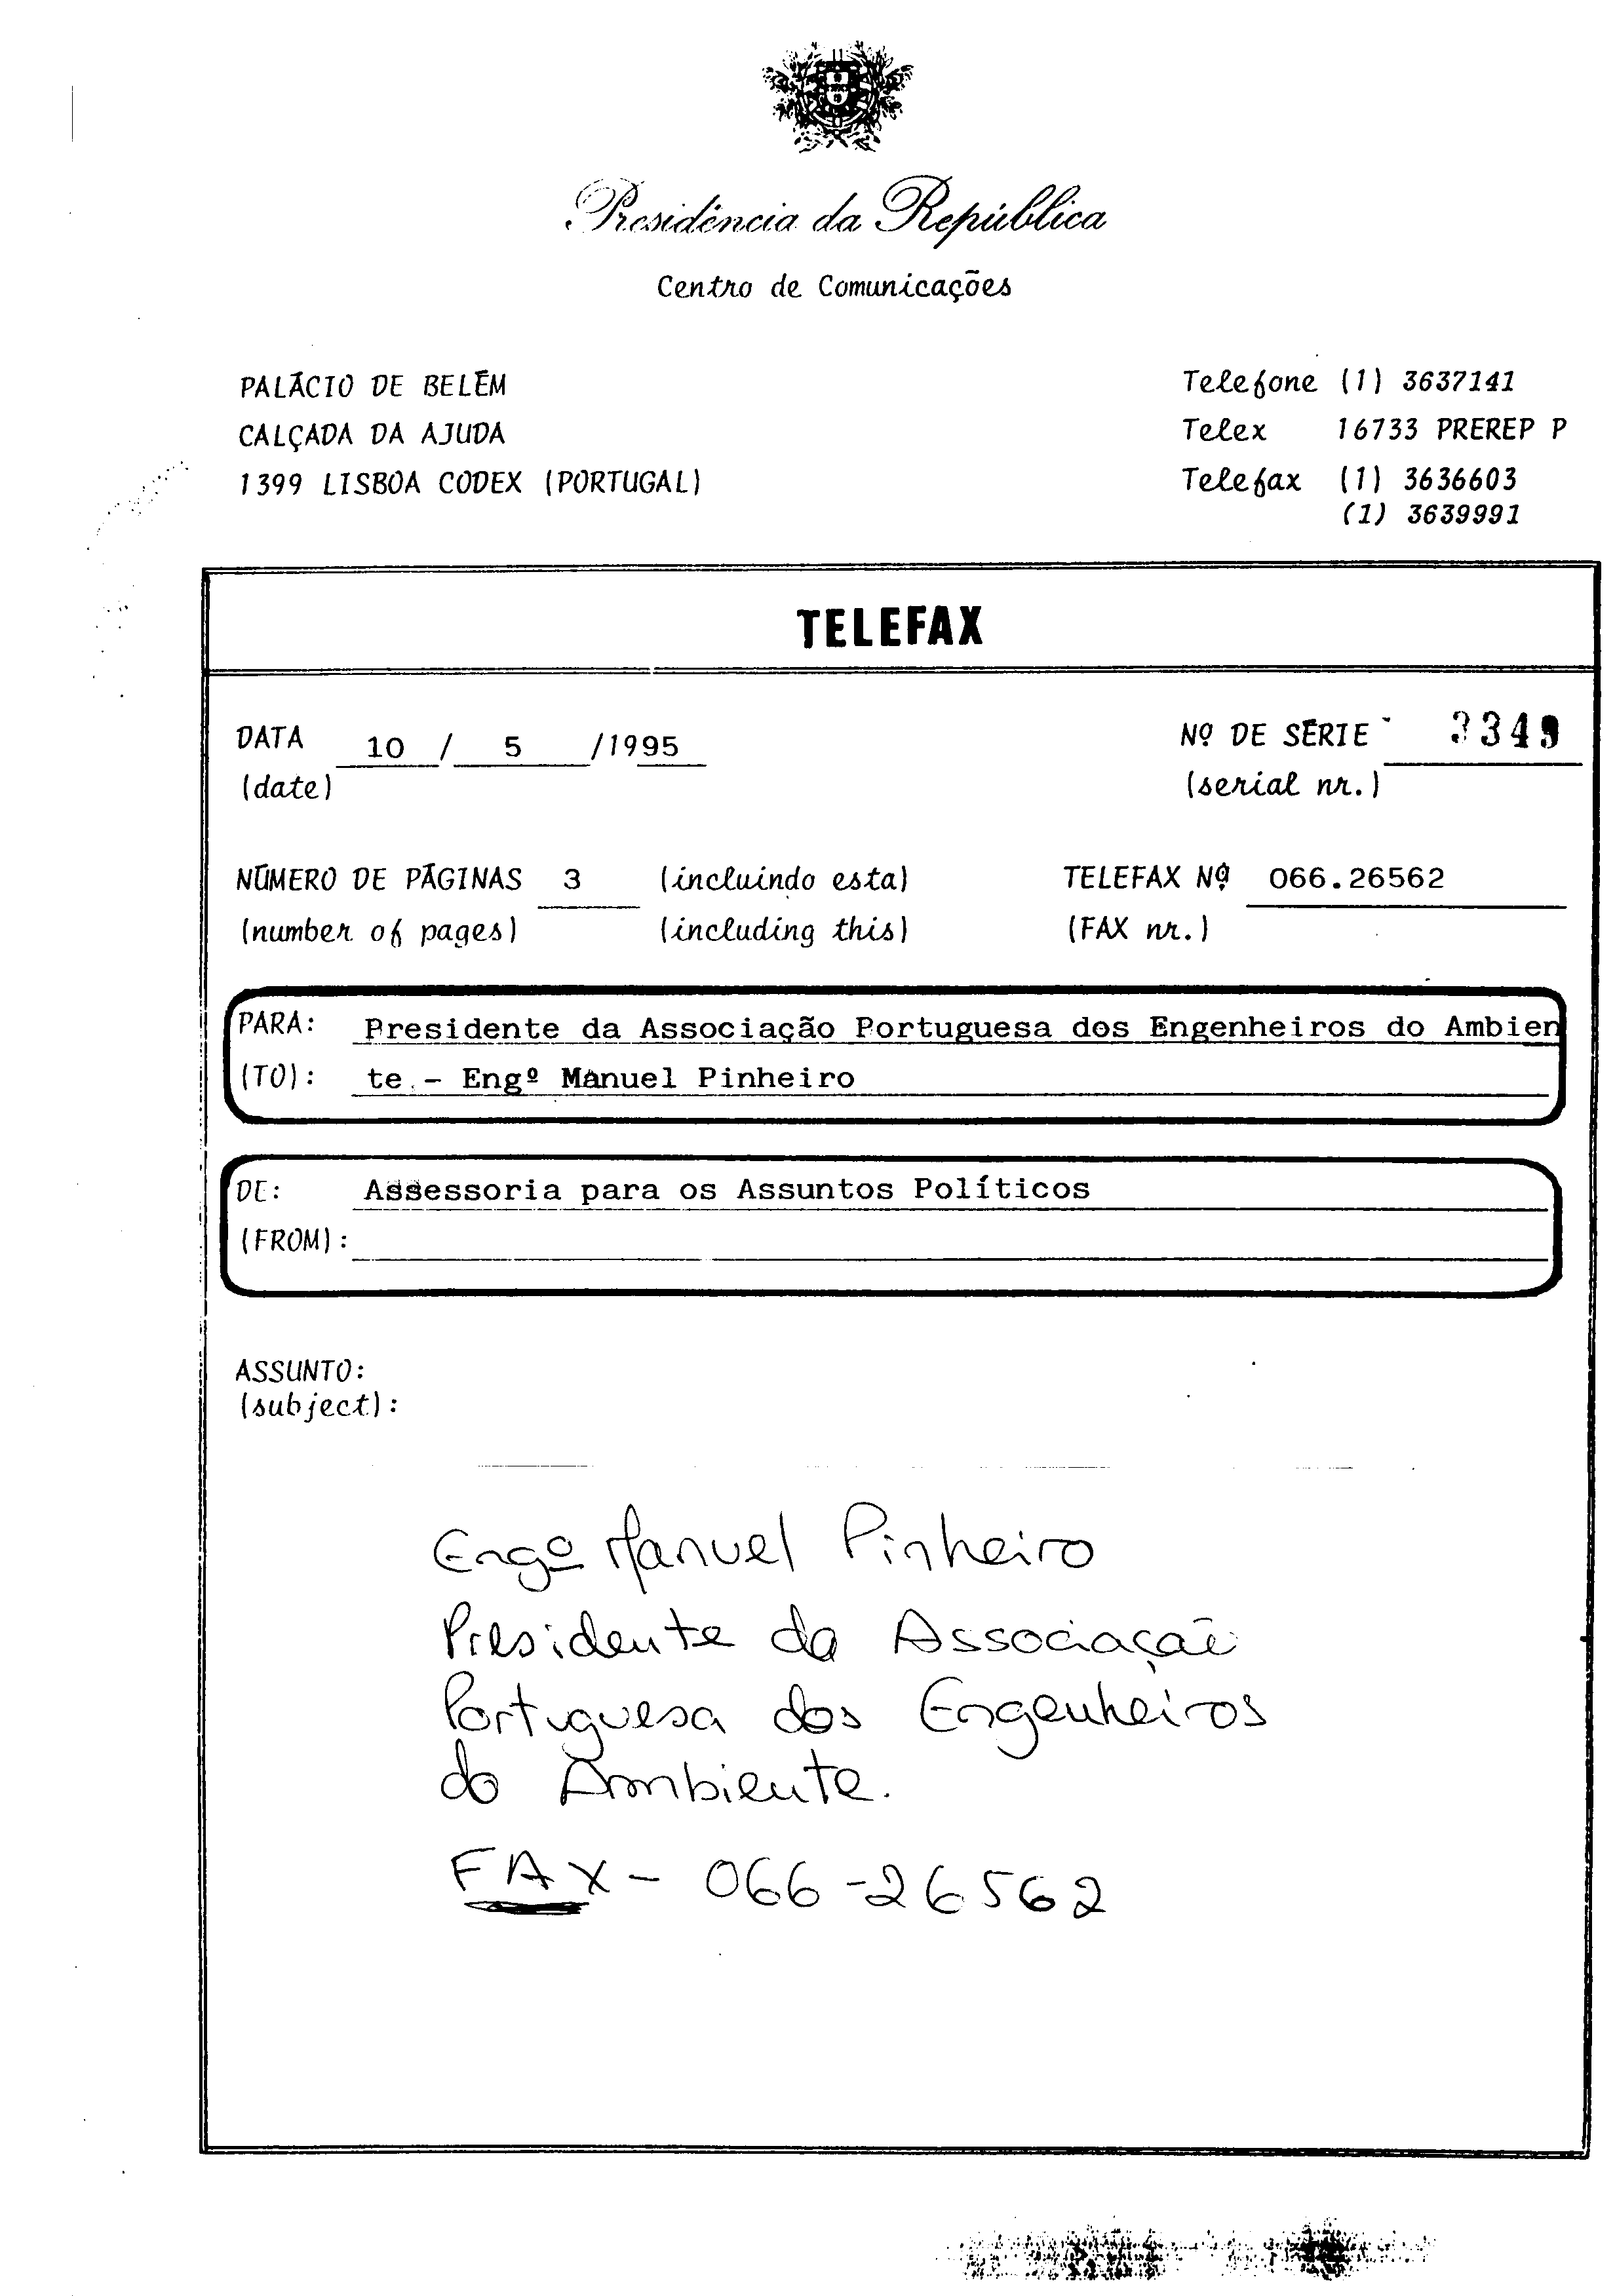 Presidência da República
Centro de Comunicações
PALÁCIO DE BELÉM
CALÇADA DA AJUDA
1399 LISBOA CODEX (PORTUGAL)
Telefone (1) 3637141
Telex 16733 PREREP P
Telefax (1) 3636603
(1) 3639991
TELEFAX
DATA 10 / 5 /1995
(date)
Nº DE SÉRIE 3349
(serial nr.)
NÚMERO DE PÁGINAS 3 (incluindo esta)
(number of pages) (including this)
TELEFAX Nº 066.26562
(FAX nr.)
PARA: Presidente da Associação Portuguesa dos Engenheiros do Ambien
(TO): te - Engº Manuel Pinheiro
DE: Assessoria para os Assuntos Políticos
(FROM):
ASSUNTO:
(subject):
Engº Manuel Pinheiro
Presidente da Associação
Portuguesa dos Engenheiros
do Ambiente.
FAX - 066-26562